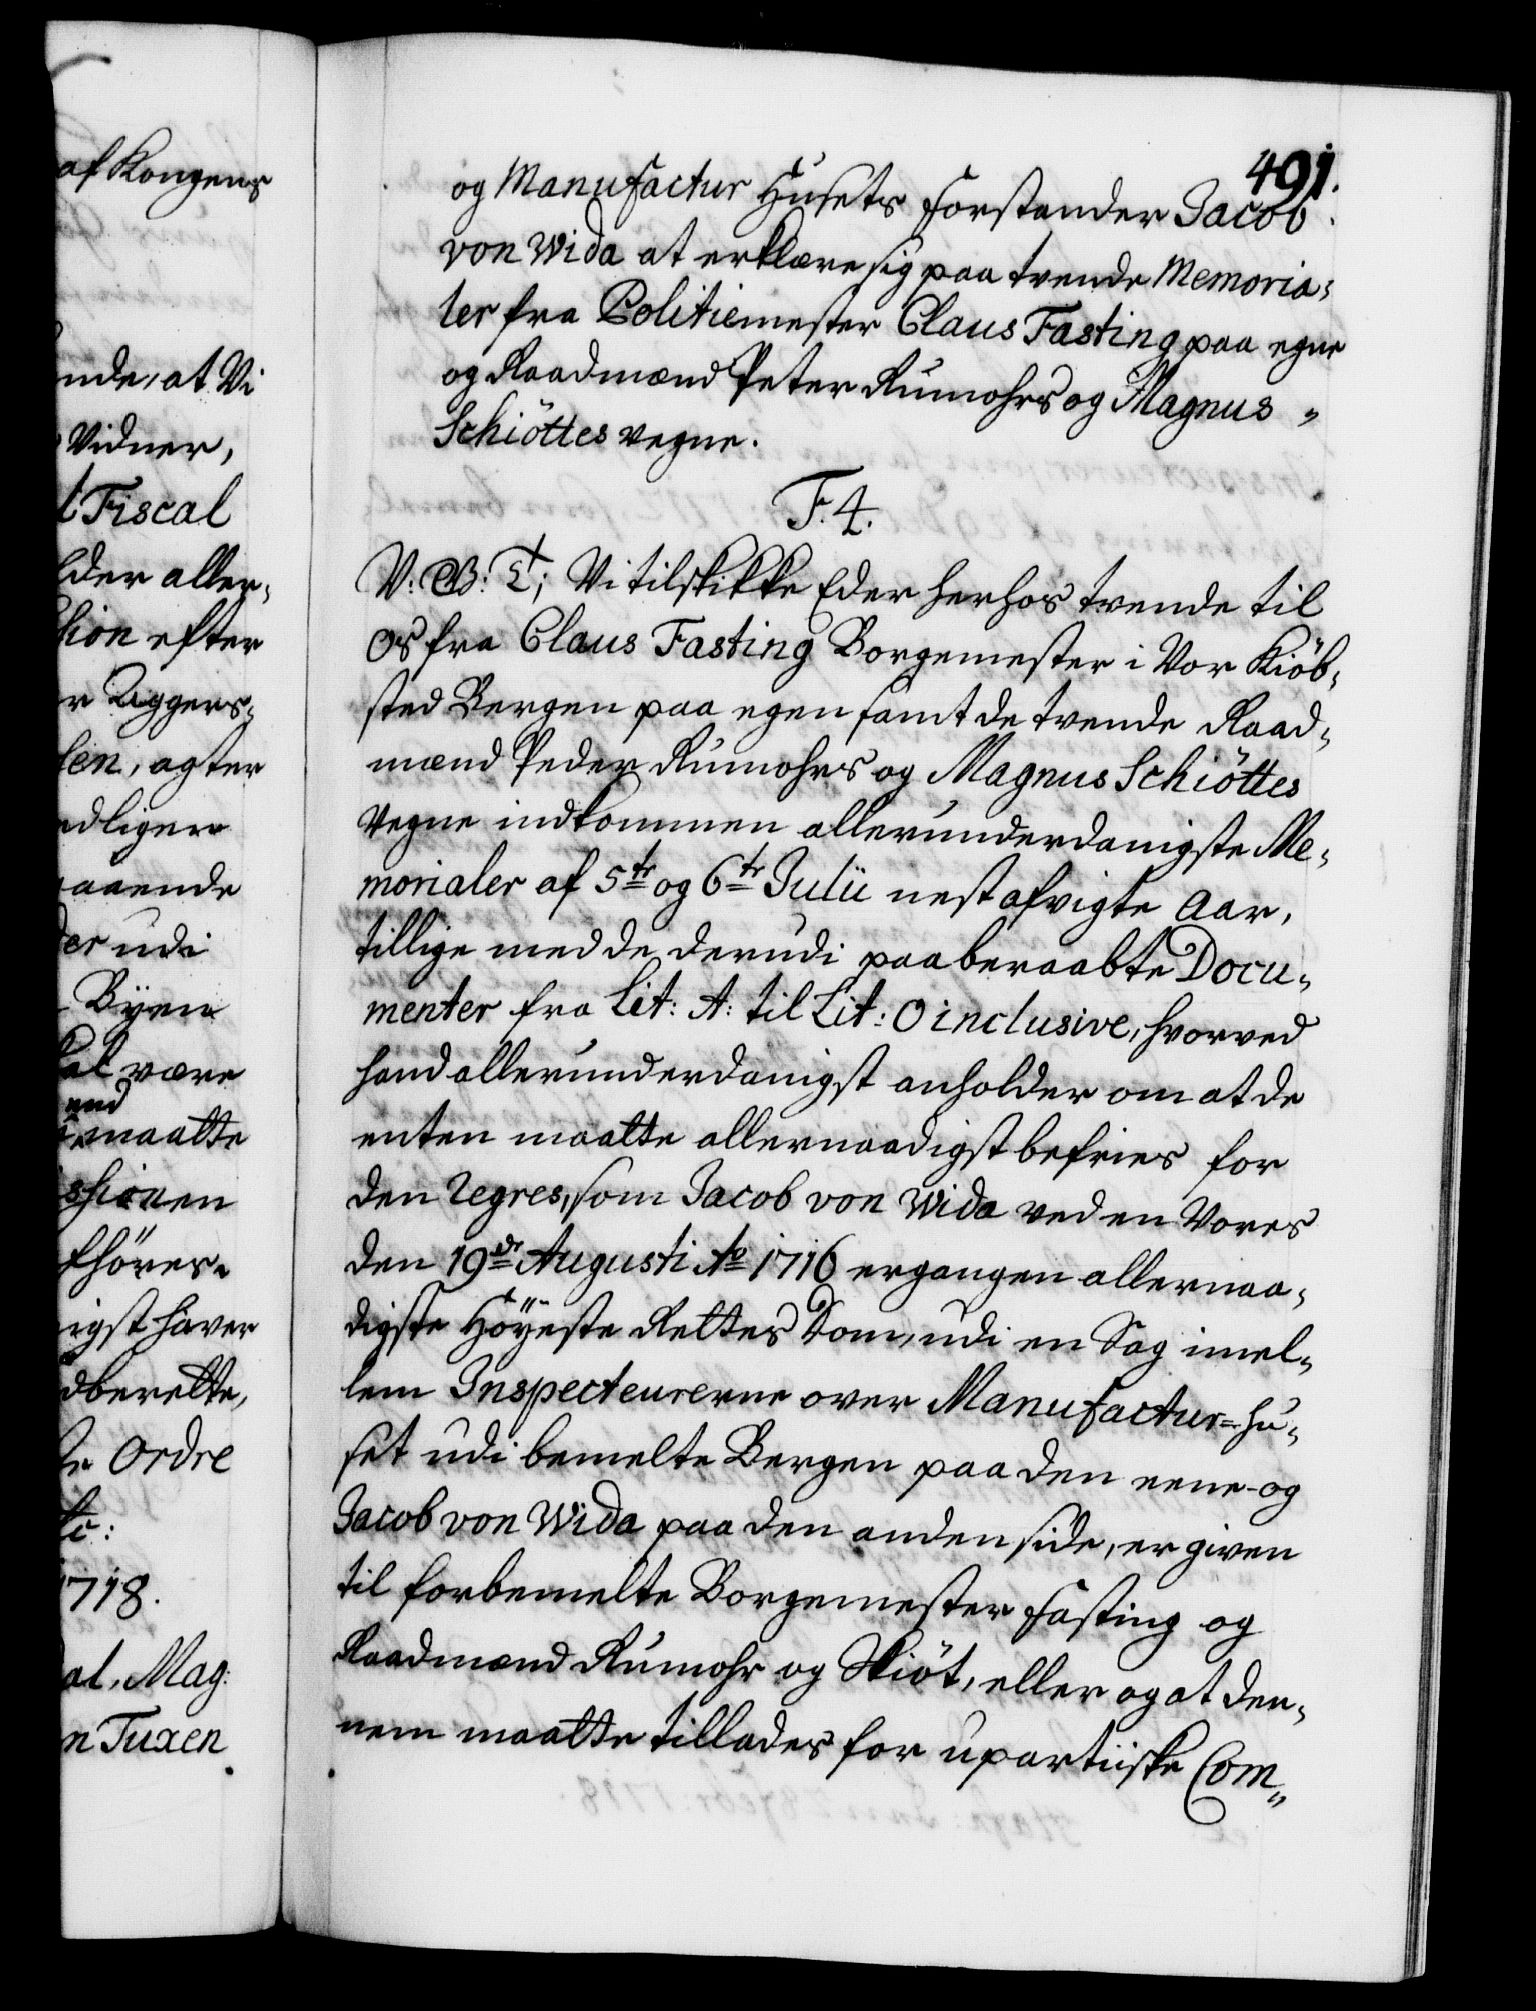 af Kongens
nde, at Vi
Vidner,
t Fiscal
lder aller¬
hion efter
r Aggers¬
len, agter
edligen
aaende
der udi
Byen
al være
end
maatte
shionen
fhöres.
igst haver
dberette,
te Ordre
tc:
1718.
al, Mag:
n Tuxen
491.
og Manufactur Husets Forstander Jacob
von Wida at erklære sig paa tvende Memoria¬
ler fra Politiemester Claus Fasting paa egne
og Raadmænd Peter Rumohrs og Magnus
Schiöttes vegne.
F. 4.
V: G: T; Vi tilskikke Eder herhos tvende til
Os fra Claus Fasting Borgemester i Vor Kiöb¬
sted Bergen paa egen samt de tvende Raad¬
mænd Peder Rumohrs og Magnus Schiöttes
Vegne indkommen allerunderdanigste Me¬
morialer af 5te og 6te Julii nest afvigte Aar,
tillige med de derudi paaberaabte Docu¬
menter fra Lit: A: til Lit: O inclusive, hvorved
hand allerunderdanigst anholder om at de
enten maatte allernaadigst befries for
den Regres, som Jacob von Wida ved en Vores
den 19de Augusti Ao 1716 ergangen allernaa¬
digste Höÿeste Rettes Dom, udi en Sag imel¬
lem Inspecteurerne over Manufactur=Hu¬
set udi bemelte Bergen paa den eene og
Jacob von Wida paa den anden side, er given
til forbemelte Borgemester Fasting og
Raadmænd Rumohr og Skiöt, eller og at den¬
nem maatte tillades for upartiiske Com¬